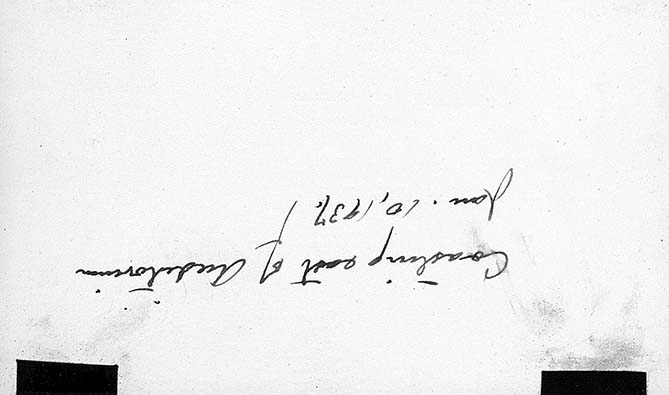 Coasting east of Auditorium
Jan. 10, 1937.